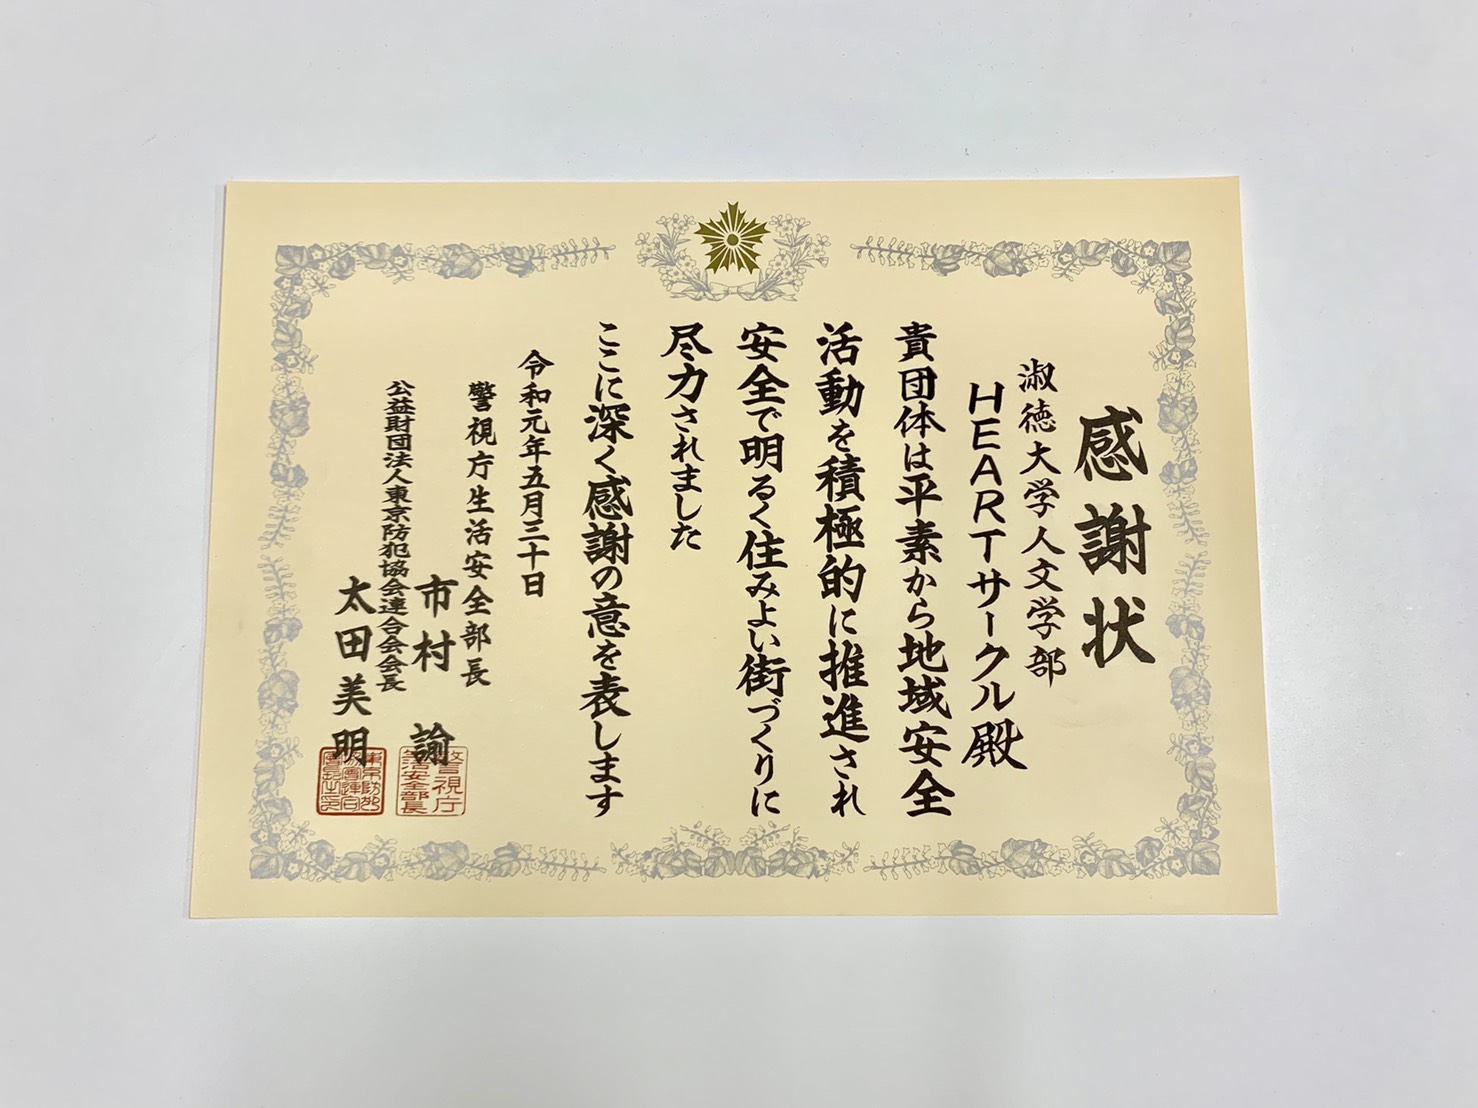 感謝状
淑徳大学人文学部
HEARTサークル殿
貴団体は平素から地域安全
活動を積極的に推進され
安全で明るく住みよい街づくりに
尽力されました
ここに深く感謝の意を表します
令和元年五月三十日
警視庁生活安全部長
市村 諭
警視庁
生活安全部長
公益財団法人東京防犯協会連合会会長
太田美明